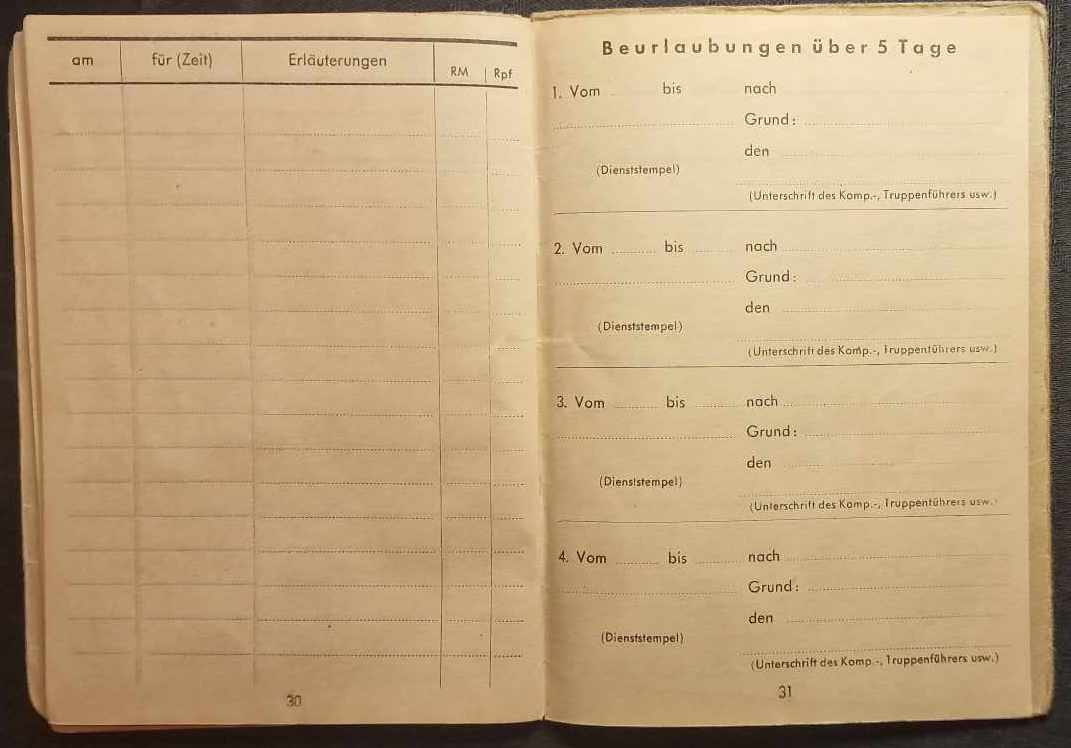 am für (Zeit) Erläuterungen RM Rpf
30
Beurlaubungen über 5 Tage
1. Vom bis nach
Grund:
den
(Dienststempel)
(Unterschrift des Komp.-, Truppenführers usw.)
2. Vom bis nach
Grund:
den
(Dienststempel)
(Unterschrift des Komp.-, Truppenführers usw.)
3. Vom bis nach
Grund:
den
(Dienststempel)
(Unterschrift des Komp.-, Truppenführers usw.)
4. Vom bis nach
Grund:
den
(Dienststempel)
(Unterschrift des Komp.-, Truppenführers usw.)
31